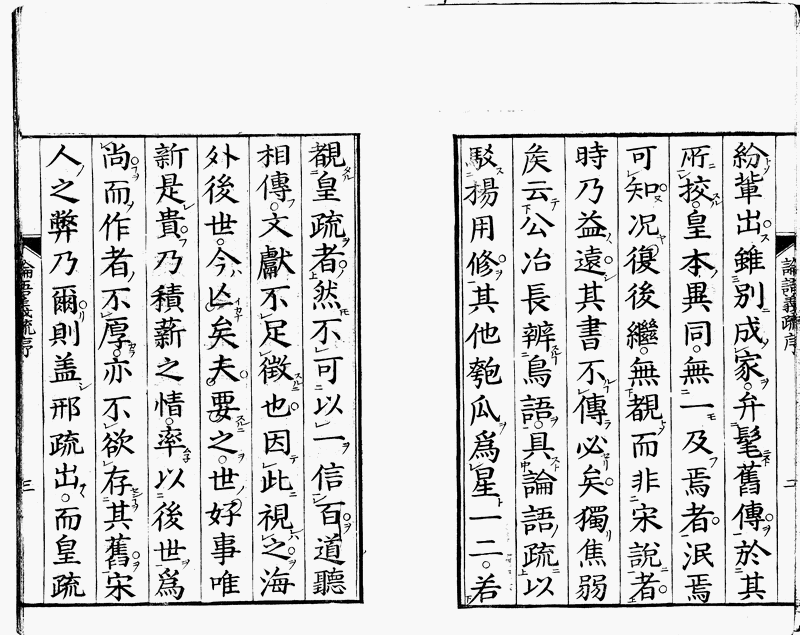 紛輩出雖別成家弁髦舊傳於其
所挍皇本異同無一及焉者泯焉
可知况復後繼無覩而非宋說者
時乃益遠其書不傳必矣獨焦弱
矦云公冶長辨鳥語具論語疏以
駁揚用修其他匏瓜爲星一二若
論語義疏序
二
覩皇疏者然不可以一信百道聽
相傳文獻不足徴也因此視之海
外後世今亾矣夫要之世好事唯
新是貴乃積薪之情率以後世爲
尚而作者不厚亦不欲存其舊宋
人之弊乃爾則盖邢疏出而皇疏
論語義疏序
三